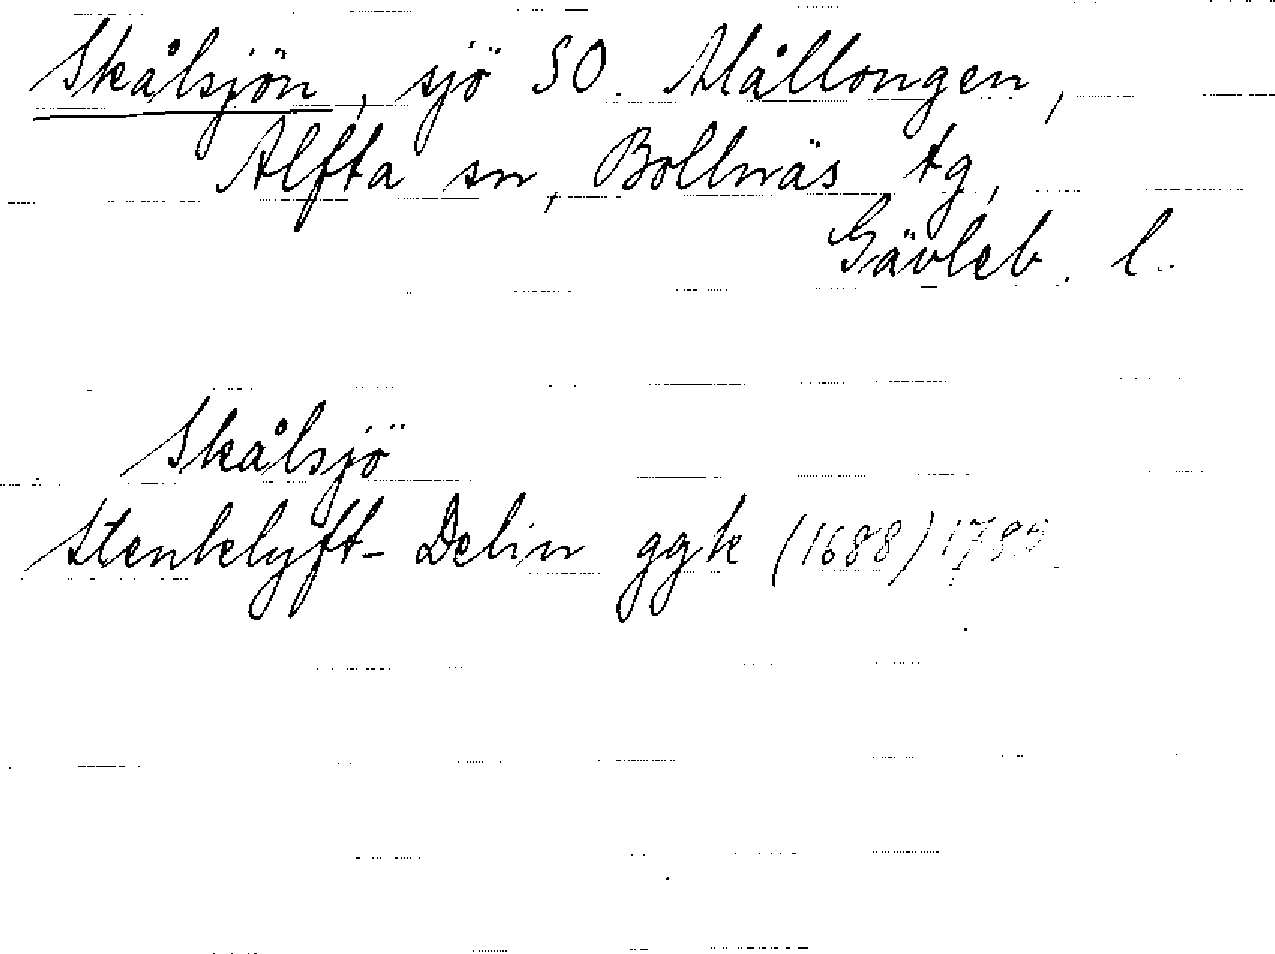 Skålsjön, sjö SO. Mållongen,
Alfta sn, Bollnäs tg,
Gävleb. l.
Skålsjö
Stenklyft- Delin ggk (1688)